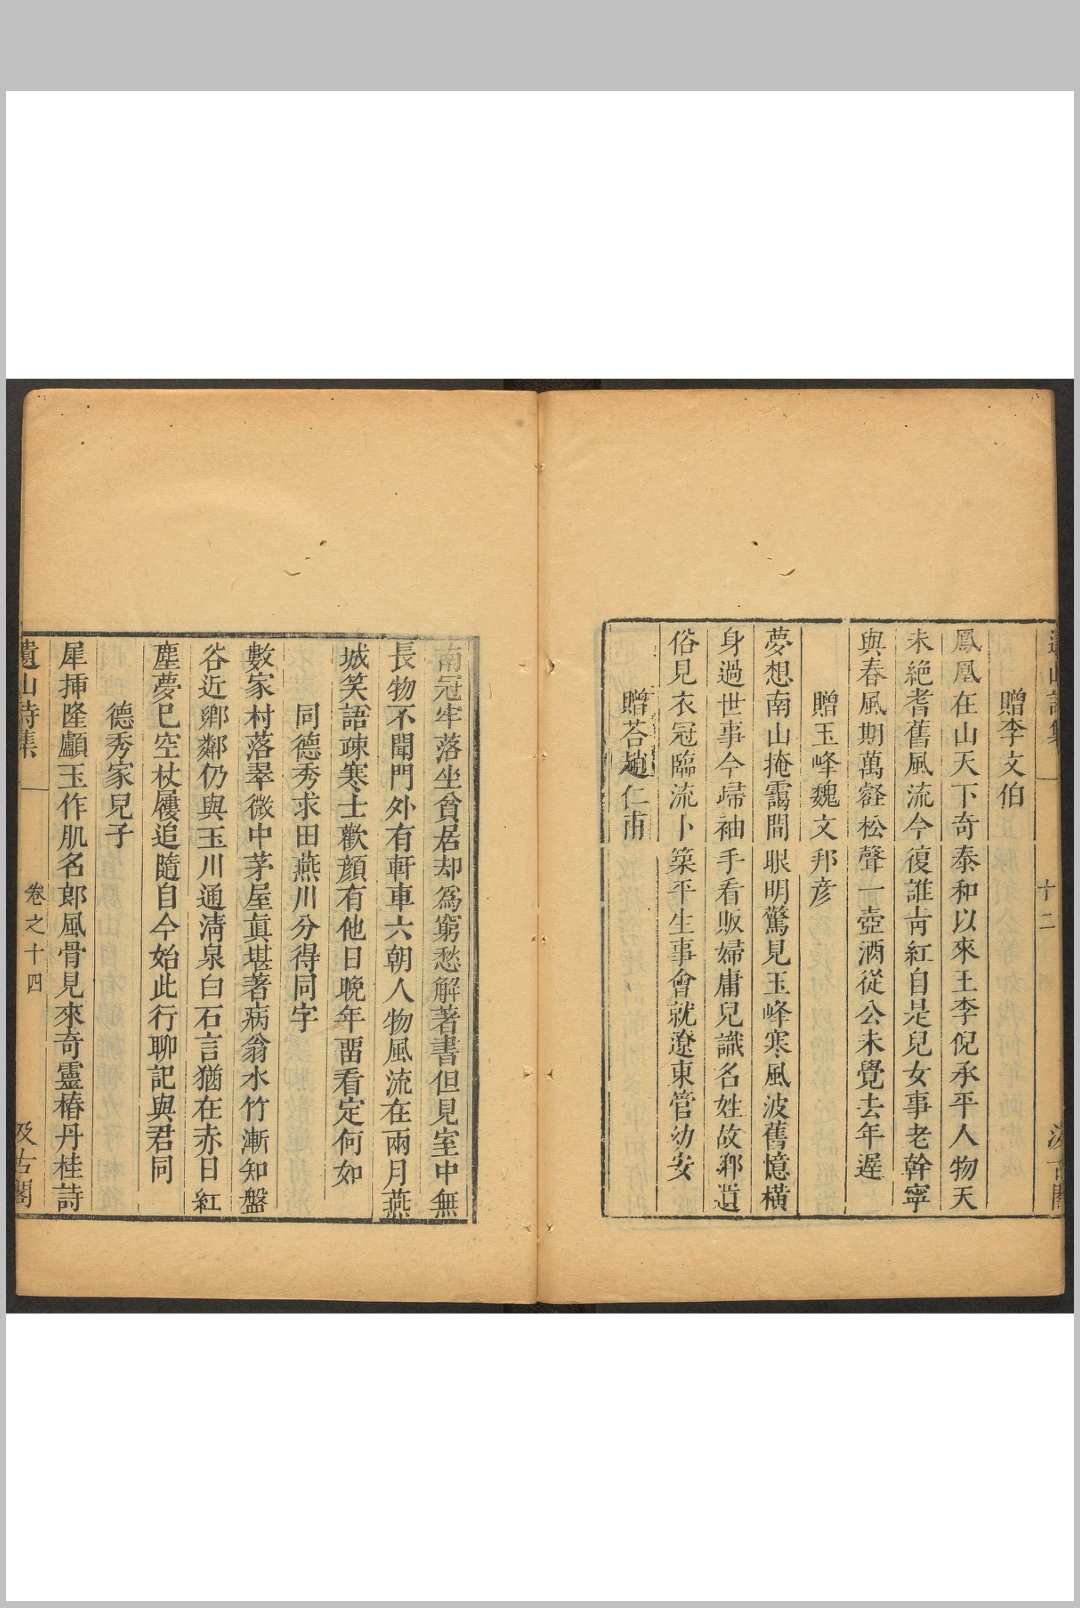 遺山詩集
十二
汲古閣
贈李文伯
鳳凰在山天下奇泰和以來王李倪承平人物天
未絶耆舊風流今復誰靑紅自是兒女事老幹寧
與春風期萬壑松聲一壺酒從公未覺去年遲
贈玉峰魏文邦彦
夢想南山掩靄間眼明驚見玉峰寒風波舊憶橫
身過世事今歸袖手看販婦庸兒識名姓故鄕遺
俗見衣冠臨流卜築平生事會就遼東管幼安
贈荅趙仁甫
南冠牢落坐貧居却爲窮愁解著書但見室中無
長物不聞門外有軒車六朝人物風流在兩月燕
城笑語疎寒士歡顔有他日晚年畱看定何如
同德秀求田燕川分得同字
數家村落翠微中茅屋眞堪著病翁水竹漸知盤
谷近鄉鄰仍與玉川通淸泉白石言猶在赤日紅
塵夢已空杖屨追隨自今始此行聊記與君同
德秀家兒子
犀揷隆顱玉作肌名郞風骨見來奇靈椿丹桂詩
遺山詩集
卷之十四
汲古閣